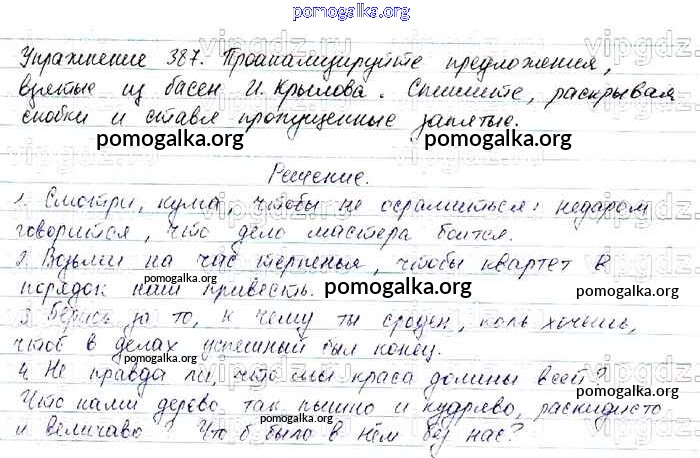 pomogalka.org
Упражнение 387. Проанализируйте предложения,
взятые из басен И. Крылова. Спишите, раскрывая
скобки и ставя пропущенные запятые.
pomogalka.org pomogalka.org
Решение.
1. Смотри, кума, чтобы не осрамиться: недаром
говорится, что дело мастера боится.
2. Возьми на час терпенья, чтобы квартет в
pomogalka.org
порядок наш привесть. pomogalka.org pomogalka.org
3. Берись за то, к чему ты сроден, коль хочешь,
чтоб в делах успешный был конец.
pomogalka.org pomogalka.org
4. Не правда ли, что мы краса долины всей?
Что нами дерево так пышно и кудряво, раскидисто
pomogalka.org
и величаво? Что б было в нём без нас?